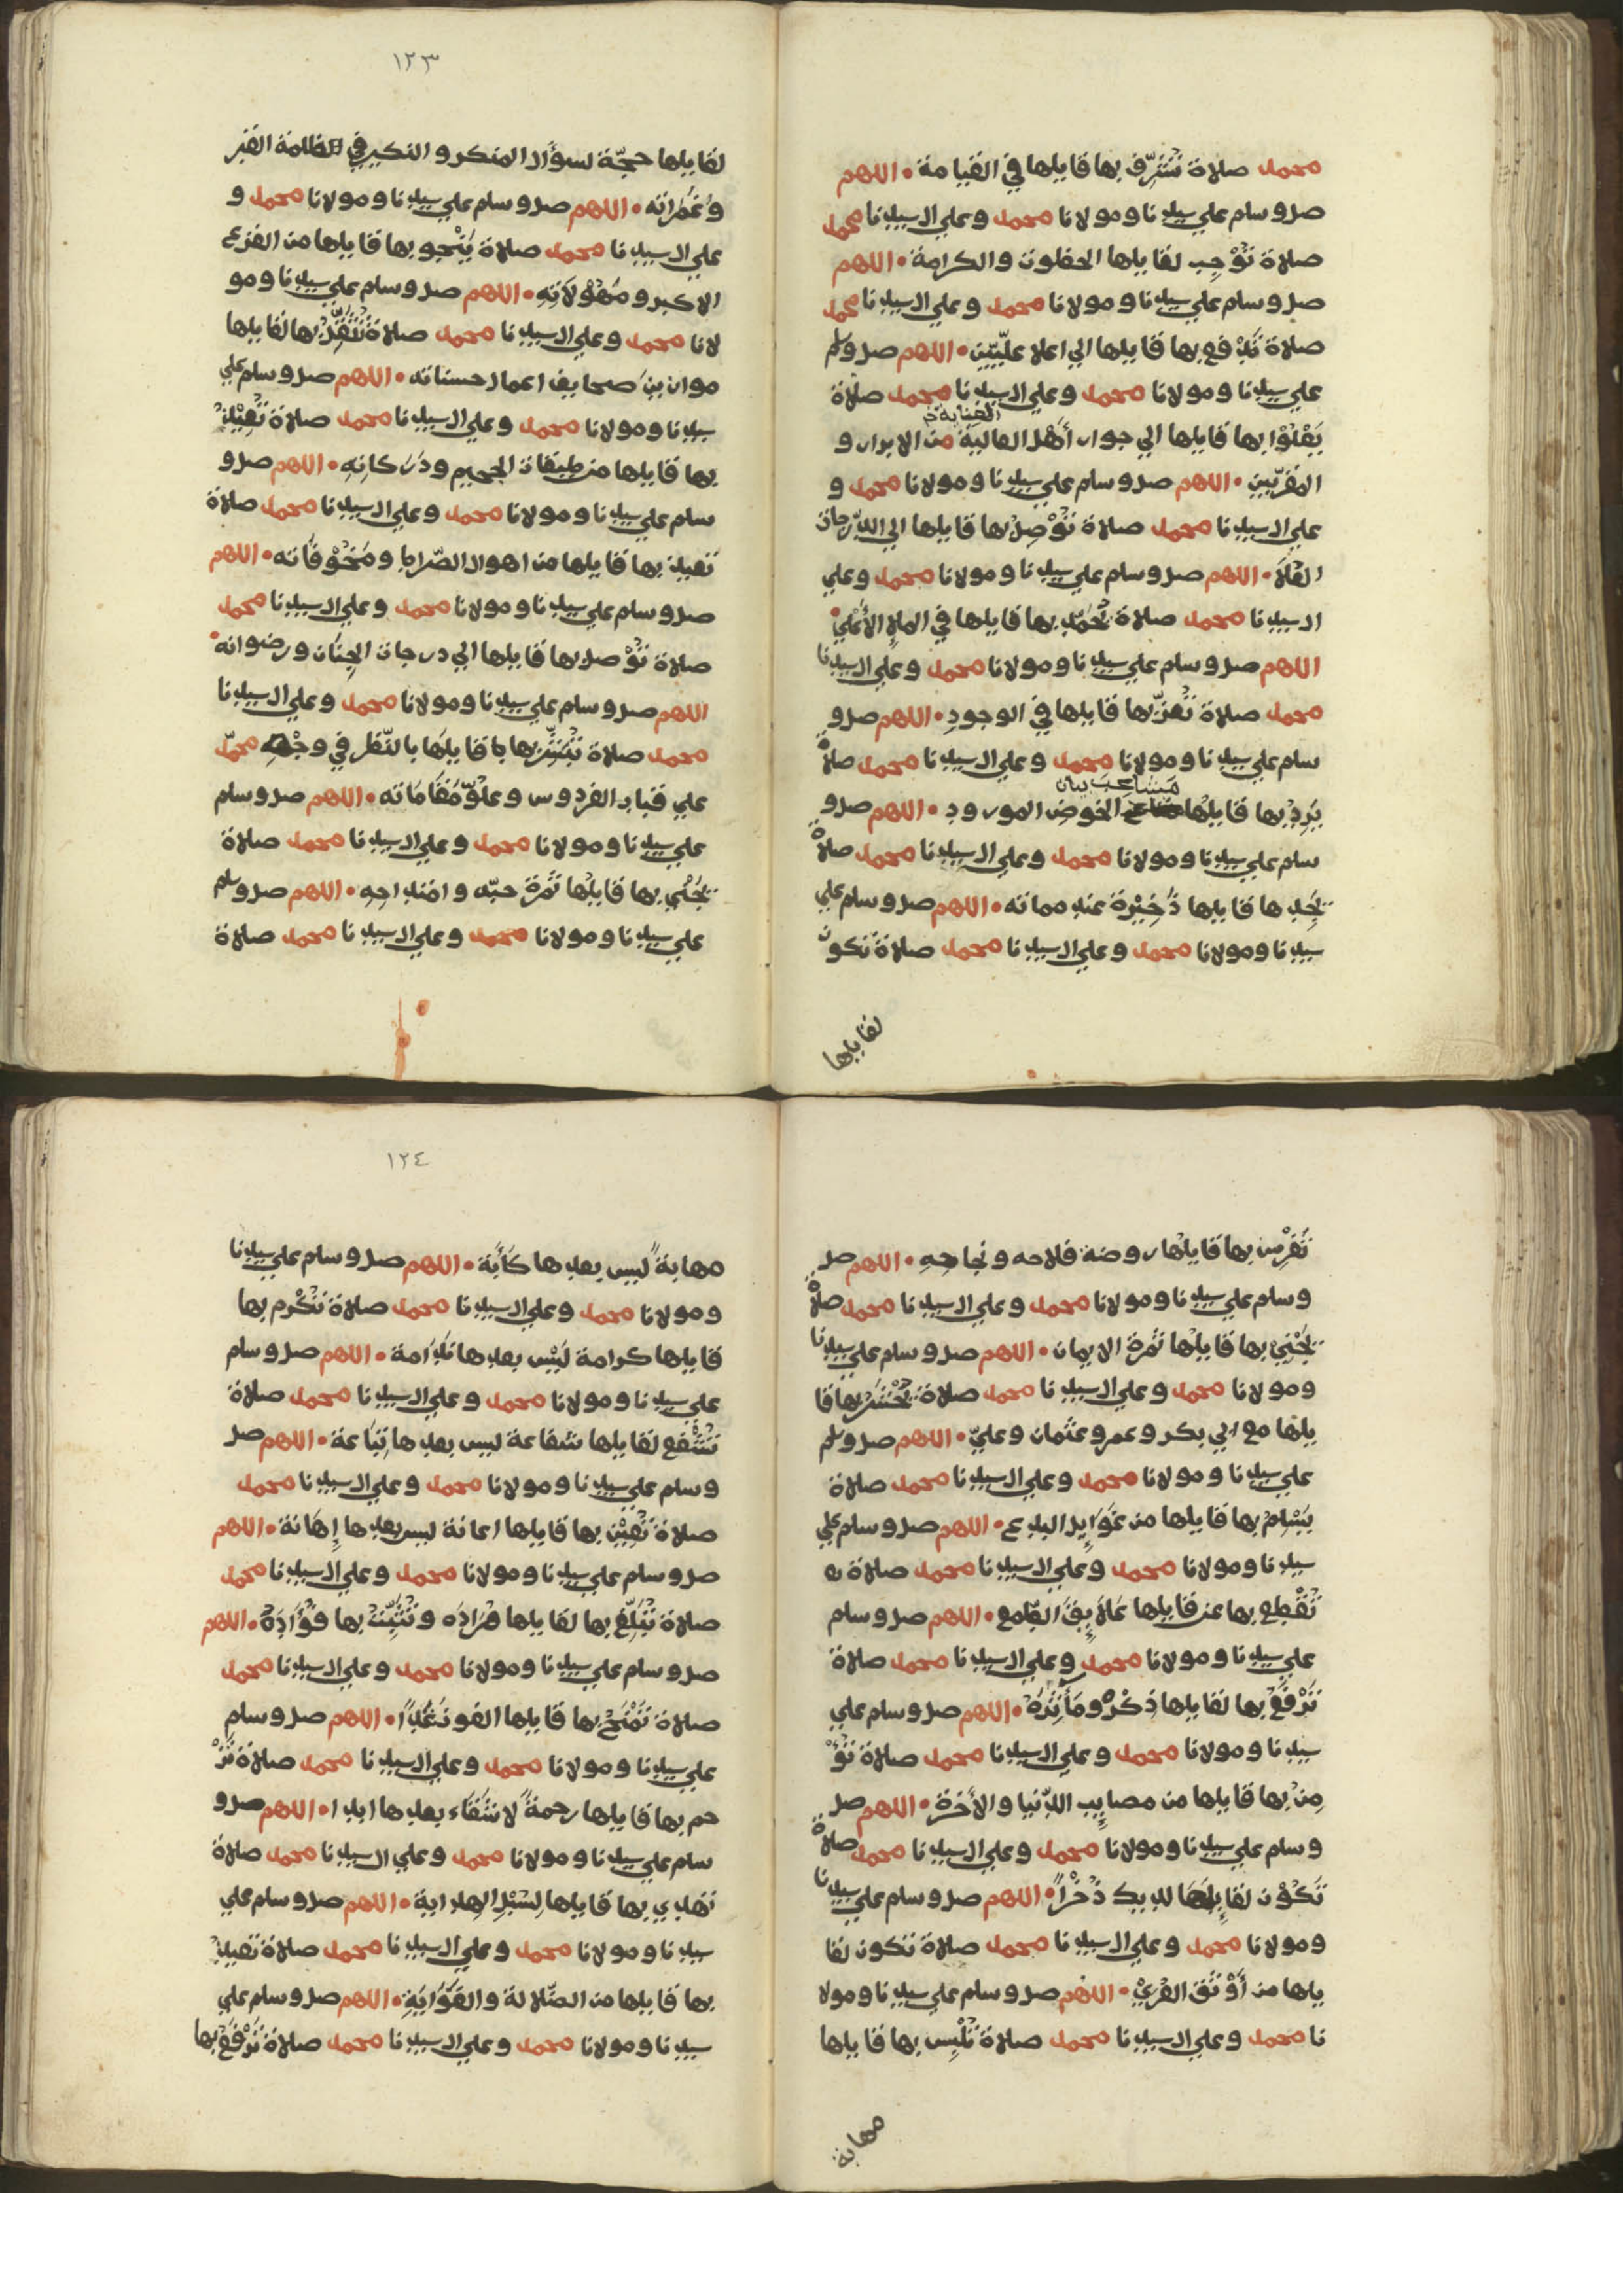 محمد صلاة تُشَرِّف بها قايلها في القيامة • اللهم
صل وسلم علي سيدنا ومولانا محمد وعلي ال سيدنا محمد
صلاة تُوْجِب لقايلها الحظوة والكرامة • اللهم
صل وسلم علي سيدنا ومولانا محمد وعلي ال سيدنا محمد
صلاة تَرْفع بها قايلها الي اعلا علّيّين • اللهم صل وسلم
علي سيدنا ومولانا محمد وعلي ال سيدنا محمد صلاة
يَعْلُوا بها قايلها الي جوار أَهْل العالية من الابرار و
المقرّبين • اللهم صل وسلم علي سيدنا ومولانا محمد و
علي ال سيدنا محمد صلاة تُوْصِل بها قايلها الي الدّرجات
العُلَا • اللهم صل وسلم علي سيدنا ومولانا محمد وعلي
ال سيدنا محمد صلاة تُحَمّد بها قايلها في الملإ الأَعْلي •
اللهم صل وسلم علي سيدنا ومولانا محمد وعلي ال سيدنا
محمد صلاة تُعزّ بها قايلها في الوجودِ • اللهم صل و
سلم علي سيدنا ومولانا محمد وعلي ال سيدنا محمد صلاة
يَرِدُ بها قايلُها الحوض المورودِ • اللهم صل و
سلم علي سيدنا ومولانا محمد وعلي ال سيدنا محمد صلاة
يَجِدها قايلها ذَخِيْرة عند مماته • اللهم صل وسلم علي
سيدنا ومولانا محمد وعلي ال سيدنا محمد صلاة تكون
لقايلها
١٢٣
لقايلها حجّة لسؤال المنكر والنكير في ظلمة القبر
وغَمَراته • اللهم صل وسلم علي سيدنا ومولانا محمد و
علي ال سيدنا محمد صلاة يَنْجو بها قايلها من الفزع
الاكبر ومَهُوْلَاتِهِ • اللهم صل وسلم علي سيدنا ومو
لانا محمد وعلي ال سيدنا محمد صلاة تُثَقِّلُ بها لقايلها
موازينَ صحايف اعمال حسناته • اللهم صل وسلم علي
سيدنا ومولانا محمد وعلي ال سيدنا محمد صلاة تُعِيْذُ
بها قايلها من طبقات الجحيم ودَرَكاتِهِ • اللهم صل و
سلم علي سيدنا ومولانا محمد وعلي ال سيدنا محمد صلاة
تعيذ بها قايلها من اهوال الصّراط ومَخُوْفَاته • اللهم
صل وسلم علي سيدنا ومولانا محمد وعلي ال سيدنا محمد
صلاة تُوْصل بها قايلها الي درجات الجِنَان ورضوانه •
اللهم صل وسلم علي سيدنا ومولانا محمد وعلي ال سيدنا
محمد صلاة تُبَشِّرُ بها قايلَها بالنّظر في وجْهِ محمّد
علي قباب الفردوس وعلوّ مَقَامَاته • اللهم صل وسلم
علي سيدنا ومولانا محمد وعلي ال سيدنا محمد صلاة
يَجْنِي بها قايلُها ثَمَرَةَ حبّه وامْتداحِهِ • اللهم صل وسلم
علي سيدنا ومولانا محمد وعلي ال سيدنا محمد صلاة
تَغْرِس بها قايلُها روضة فلاحه ونجاحِهِ • اللهم صل
وسلم علي سيدنا ومولانا محمد وعلي ال سيدنا محمد صلاة
يَجْنِيْ بها قايلُها ثمرة الايمان • اللهم صل وسلم علي سيدنا
ومولانا محمد وعلي ال سيدنا محمد صلاة تَحْشُرُ بها قا
يلها مع ابي بكر وعمر وعثمان وعليّ • اللهم صل وسلم
علي سيدنا ومولانا محمد وعلي ال سيدنا محمد صلاة
يَسْلِمُ بها قايلها من عَوَايِد البدع • اللهم صل وسلم علي
سيدنا ومولانا محمد وعلي ال سيدنا محمد صلاة
تَقْطع بها عن قايلها عَلَايِقَ الطّمع • اللهم صل وسلم
علي سيدنا ومولانا محمد وعلي ال سيدنا محمد صلاة
تَرْفَعُ بها لقايلها ذكْرَه ومَأْثَرَهُ • اللهم صل وسلم علي
سيدنا ومولانا محمد وعلي ال سيدنا محمد صلاة تُؤْ
مِنُ بها قايلها من مصايِب الدّنيا والأخرة • اللهم صل
وسلم علي سيدنا ومولانا محمد وعلي ال سيدنا محمد صلاة
تَكُوْن لقايِلِهَا لديك ذُخْراً • اللهم صل وسلم علي سيدنا
ومولانا محمد وعلي ال سيدنا محمد صلاة تكون لقا
يلها من أَوْثَق العُرَيْ • اللهم صل وسلم علي سيدنا ومولا
نا محمد وعلي ال سيدنا محمد صلاة تُلْبِس بها قايلها
مهابة
١٢٤
مهابةً ليس بعدها كَأَبَة • اللهم صل وسلم علي سيدنا
ومولانا محمد وعلي ال سيدنا محمد صلاة تُكْرم بها
قايلها كرامة لَيْس بعدها نَدَامة • اللهم صل وسلم
علي سيدنا ومولانا محمد وعلي ال سيدنا محمد صلاة
تُشَفّع لقايلها شفاعة ليس بعدها تِبَاعة • اللهم صل
وسلم علي سيدنا ومولانا محمد وعلي ال سيدنا محمد
صلاة تُعِيْن بها قايلها اعانة ليس بعدها إِهَانة • اللهم
صل وسلم علي سيدنا ومولانا محمد وعلي ال سيدنا محمد
صلاة تُبَلِّغُ بها لقايلها مُرَادَه وتُثَبِّتُ بها فُؤَادَهُ • اللهم
صل وسلم علي سيدنا ومولانا محمد وعلي ال سيدنا محمد
صلاة تَمْنَحُ بها قايلها الفوز غَداً • اللهم صل وسلم
علي سيدنا ومولانا محمد وعلي ال سيدنا محمد صلاة تَرْ
حم بها قايلها رحمةً لا شَقَاء بعدها ابدا • اللهم صل و
سلم علي سيدنا ومولانا محمد وعلي ال سيدنا محمد صلاة
تهدي بها قايلها لِسُبْلِ الهداية • اللهم صل وسلم علي
سيدنا ومولانا محمد وعلي ال سيدنا محمد صلاة تعيذُ
بها قايلها من الضّلالة والغَوَايَةِ • اللهم صل وسلم علي
سيدنا ومولانا محمد وعلي ال سيدنا محمد صلاة تَرْفَعُ بها